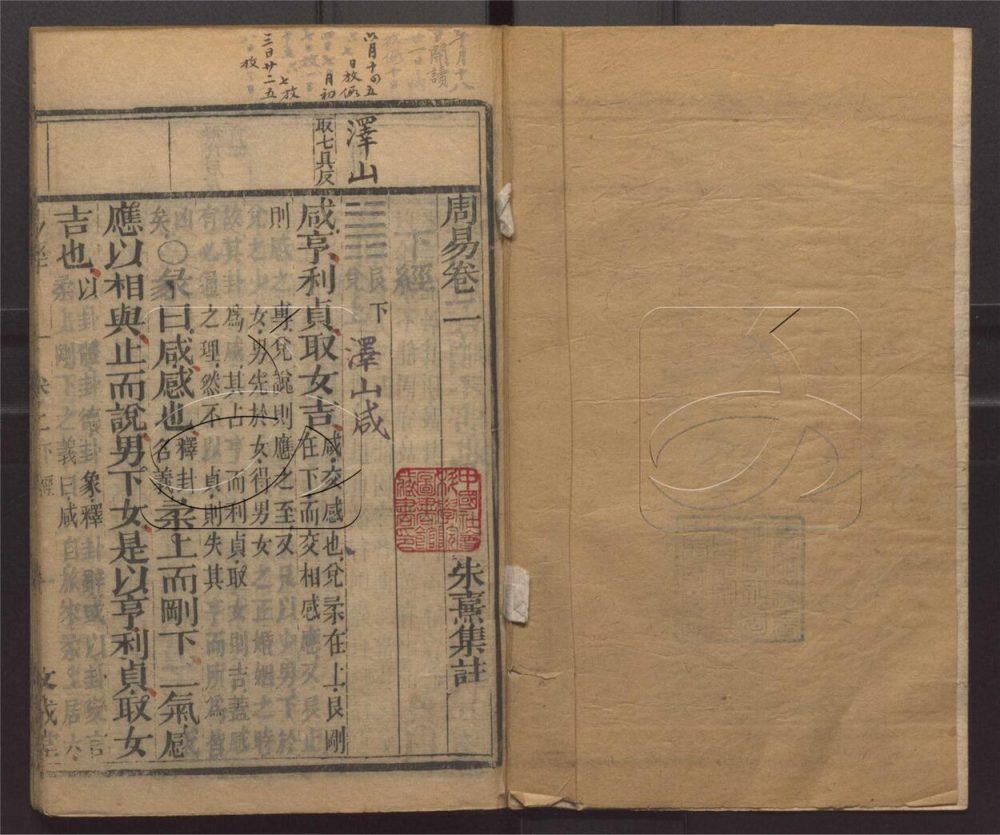 周易卷二
朱熹集註
下經
澤山
艮下
兌上
澤山咸
取七具反
咸亨利貞取女吉
咸交感也兌柔在上艮剛
在下而交相感應又艮止
則感之專兌說則應之至又艮以少男下於
兌之少女男先於女得男女之正婚姻之時
故其卦爲咸其占亨而利貞取女則吉蓋感
有必通之理然不以貞則失其亨而所爲皆
凶矣
○彖曰咸感也
釋卦
名義
柔上而剛下二氣感
應以相與止而說男下女是以亨利貞取女
吉也
以卦體卦德卦象釋卦辭或以卦變言
柔上剛下之義曰咸自旅來柔上居六
中國社會
科學院
圖書館
藏書印